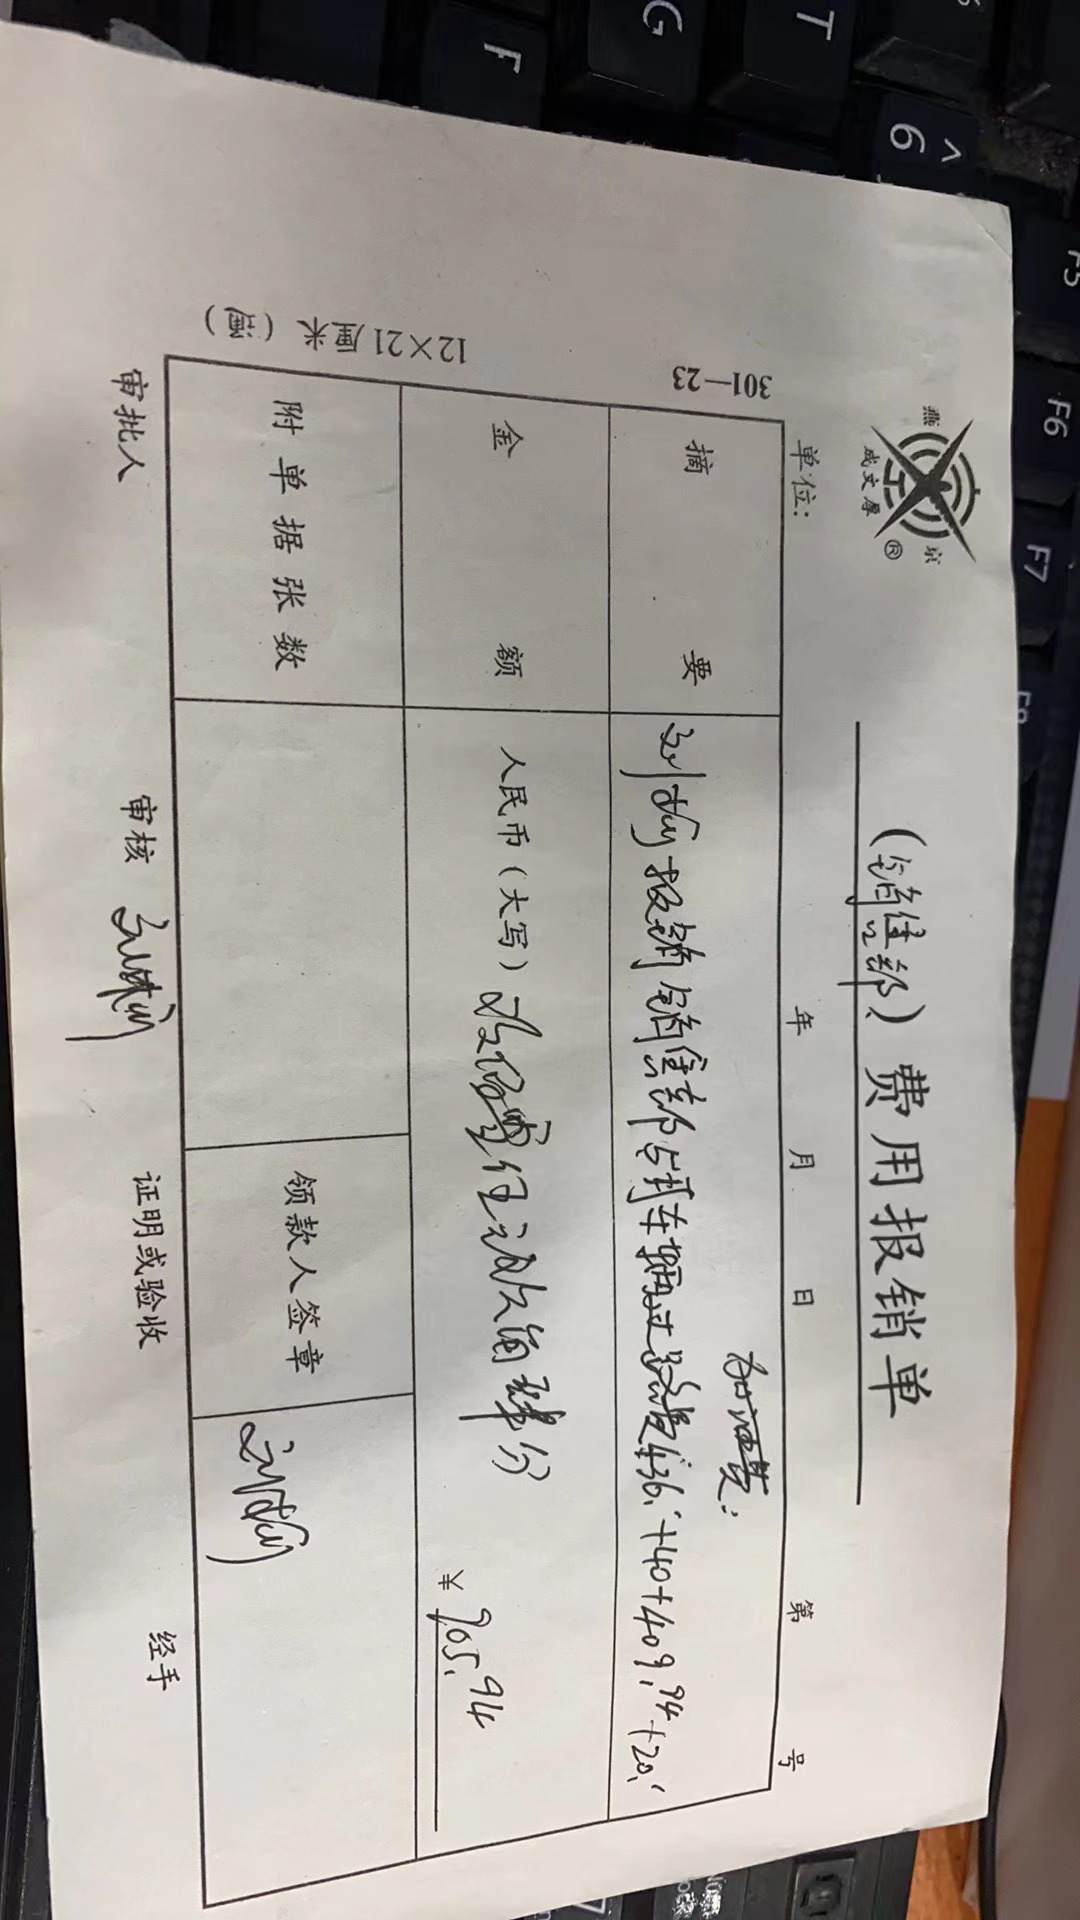 燕京
成文厚®
(销售部)费用报销单
单位: 年 月 日 第 号
301—23
加油费:
摘要 报销销售部与车辆过路费436.+40+409.94+20.
金额 人民币(大写)玖佰零伍元玖角肆分 ¥905.94
附单据张数 领款人签章
审批人 审核 证明或验收 经手
12×21厘米
T G F
^ 6
F5 F6 F7